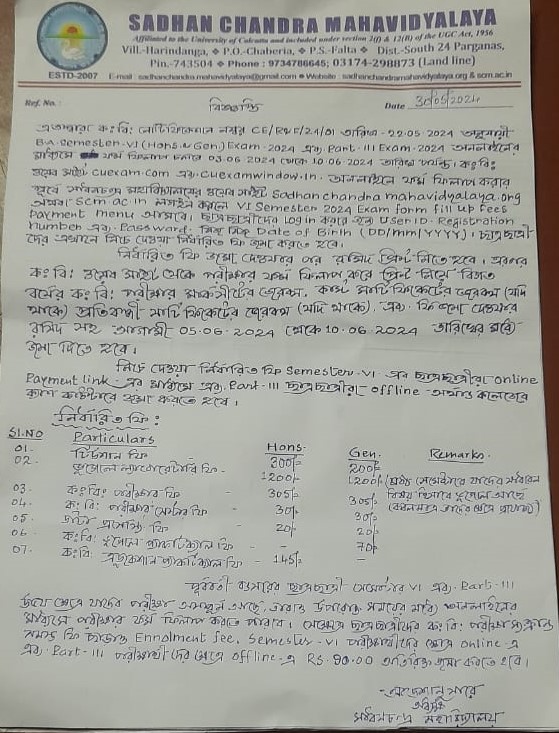 SADHAN CHANDRA MAHAVIDYALAYA
Affiliated to the University of Calcutta and included under section 2(f) & 12(B) of the UGC Act, 1956
Vill.-Harindanga, ❖ P.O.-Chaberia, ❖ P.S.-Falta ❖ Dist.-South 24 Parganas,
Pin.-743504 ❖ Phone : 9734786645; 03174-298873 (Land line)
ESTD-2007 E-mail : sadhanchandra.mahavidyalaya@gmail.com ● Website : sadhanchandramahavidyalaya.org & scm.ac.in
Ref. No. : Date 30/05/2024
বিজ্ঞপ্তি
এতদ্বারা কঃ বিঃ নোটিফিকেশন নম্বর CE/R&E/24/01 তারিখ - 22.05.2024 অনুযায়ী
B.A. Semester-VI (Hons & Gen) Exam-2024 এবং Part-III Exam-2024 অনলাইনের
মাধ্যমে ফর্ম ফিলাপ চলবে 03.06.2024 থেকে 10.06.2024 তারিখ পর্যন্ত। কঃ বিঃ
ওয়েব সাইট cuexam.com এবং cuexamwindow.in. অনলাইনে ফর্ম ফিলাপ করার
পূর্বে সাধনচন্দ্র মহাবিদ্যালয়ের ওয়েব সাইট Sadhanchandramahavidyalaya.org
অথবা Scm.ac.in লগইন করলে VI Semester 2024 Exam form fill up Fees
Payment menu আসবে। ছাত্রছাত্রীদের Login করতে হবে User ID- Registration
Number এবং Password- Date of Birth (DD/MM/YYYY)। ছাত্রছাত্রী
দের এখানে নিচে দেওয়া নির্ধারিত ফি জমা করতে হবে।
নির্ধারিত ফি জমা দেওয়ার পর রসিদ প্রিন্ট নিতে হবে। এরপর
কঃ বিঃ ওয়েব সাইট থেকে পরীক্ষার ফর্ম ফিলাপ করে প্রিন্ট নিয়ে বিগত
বর্ষের কঃ বিঃ পরীক্ষার মার্কসীটের জেরক্স, কাস্ট সার্টিফিকেটের জেরক্স (যদি
থাকে) প্রতিবন্ধী সার্টিফিকেটের জেরক্স (যদি থাকে), এবং ফি জমা দেওয়ার
রসিদ সহ আগামী 05.06.2024 থেকে 10.06.2024 তারিখের মধ্যে
জমা দিতে হবে।
নিচে দেওয়া নির্ধারিত ফি Semester-VI এর ছাত্রছাত্রীরা online
Payment link এর মাধ্যমে এবং Part-III ছাত্রছাত্রীরা offline অর্থাৎ কলেজের
ক্যাশ কাউন্টারে জমা করতে হবে।
নির্ধারিত ফি :
Sl.NO Particulars Hons. Gen. Remarks.
01- টিউশন ফি 300/- 200/-
02. ভূগোল ল্যাবোরেটরি ফি - 1200/- 1200/-
03. কঃ বিঃ পরীক্ষার ফি - 305/- 305/-
04. কঃ বিঃ পরীক্ষার সেন্টার ফি - 30/- 30/-
05. ফি - 20/- 20/-
06. কঃ বিঃ ভূগোল প্র্যাকটিক্যাল ফি - - 70/-
07. কঃ বিঃ এডুকেশন প্র্যাকটিক্যাল ফি - 145/- -
পূর্ববর্তী বৎসরের ছাত্রছাত্রী সেমেস্টার VI এবং Part-III
উভয় ক্ষেত্রে যাদের পরীক্ষা অসম্পূর্ণ আছে, তারাও উপরোক্ত সময়ের মধ্যে অনলাইনের
মাধ্যমে পরীক্ষার ফর্ম ফিলাপ করতে পারবে। ছাত্রছাত্রীদের কঃ বিঃ পরীক্ষা সংক্রান্ত
সমস্ত ফি ছাড়াও Enrolment fee, Semester-VI পরীক্ষার্থীদের ক্ষেত্রে online এ
এবং Part-III পরীক্ষার্থীদের ক্ষেত্রে offline এ Rs. 90.00 অতিরিক্ত জমা করতে হবে।
আদেশানুসারে
অধ্যক্ষ
সাধনচন্দ্র মহাবিদ্যালয়